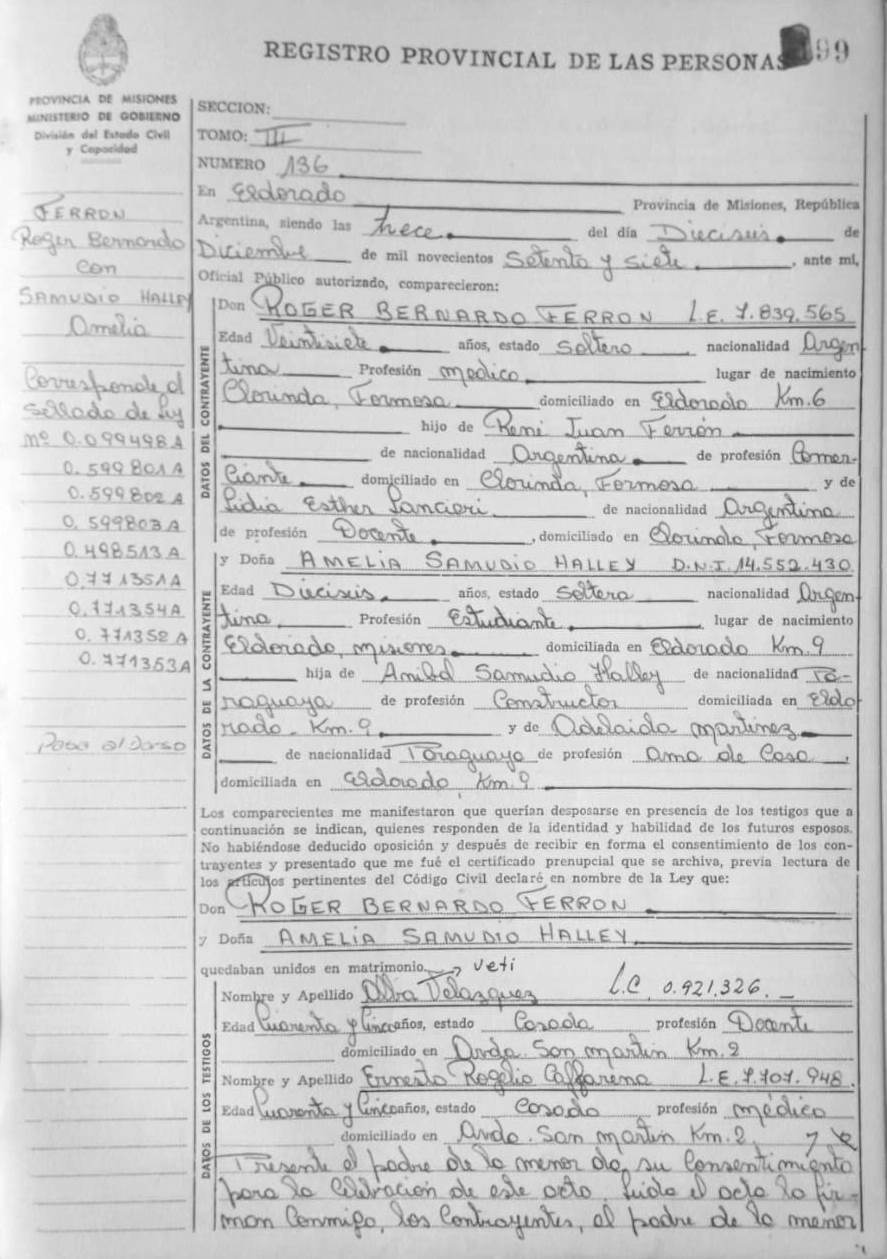 REGISTRO PROVINCIAL DE LAS PERSONAS
99
PROVINCIA DE MISIONES
MINISTERIO DE GOBIERNO
División del Estado Civil
y Capacidad
FERRON
Roger Bernardo
con
SAMUDIO HALLEY
Amelia
Corresponde al
sellado de ley
nº 0.099498A
0.599801A
0.599802A
0.599803A
0.498513A
0.771351A
0.771354A
0.771352A
0.771353A
Pasa al dorso
SECCION:
TOMO: III
NUMERO 136
En Eldorado Provincia de Misiones, República
Argentina, siendo las trece del día Dieciseis de
Diciembre de mil novecientos Setenta y siete, ante mí,
Oficial Público autorizado, comparecieron:
DATOS DEL CONTRAYENTE
Don ROGER BERNARDO FERRON L.E. 7.839.565
Edad Veintisiete años, estado soltero nacionalidad Argen
tina Profesión medico lugar de nacimiento
Clorinda, Formosa domiciliado en Eldorado Km.6
hijo de René Juan Ferrón
de nacionalidad Argentina de profesión Comer-
ciante domiciliado en Clorinda, Formosa y de
Lidia Esther de nacionalidad Argentina
de profesión Docente, domiciliado en Clorinda, Formosa
DATOS DE LA CONTRAYENTE
y Doña AMELIA SAMUDIO HALLEY D.N.I. 14.552.430
Edad Dieciseis años, estado soltera nacionalidad Argen
tina, Profesión Estudiante, lugar de nacimiento
Eldorado, misiones domiciliada en Eldorado Km.9
hija de Samudio Halley de nacionalidad Pa-
raguaya de profesión Constructor domiciliada en Eldo
rado - Km.9 y de Adelaida martinez
de nacionalidad Paraguaya de profesión ama de Casa,
domiciliada en Eldorado, Km.9
Los comparecientes me manifestaron que querían desposarse en presencia de los testigos que a
continuación se indican, quienes responden de la identidad y habilidad de los futuros esposos.
No habiéndose deducido oposición y después de recibir en forma el consentimiento de los con-
trayentes y presentado que me fué el certificado prenupcial que se archiva, previa lectura de
los artículos pertinentes del Código Civil declaré en nombre de la Ley que:
Don ROGER BERNARDO FERRON
y Doña AMELIA SAMUDIO HALLEY
quedaban unidos en matrimonio.
DATOS DE LOS TESTIGOS
Nombre y Apellido Alba Velazquez L.C. 0.921.326.
Edad Cuarenta y Cinco años, estado Casada profesión Docente
domiciliado en Avda. San martin Km.2
Nombre y Apellido Ernesto Rogelio Caffarena L.E. 7.707.948.
Edad Cuarenta y Cinco años, estado Casado profesión médico
domiciliado en Avda. San martin Km.2,
Presente el padre de la menor da su Consentimiento
para la Celebración de este acto. Leída el acta la fir-
man Conmigo, los Contrayentes, el padre de la menor